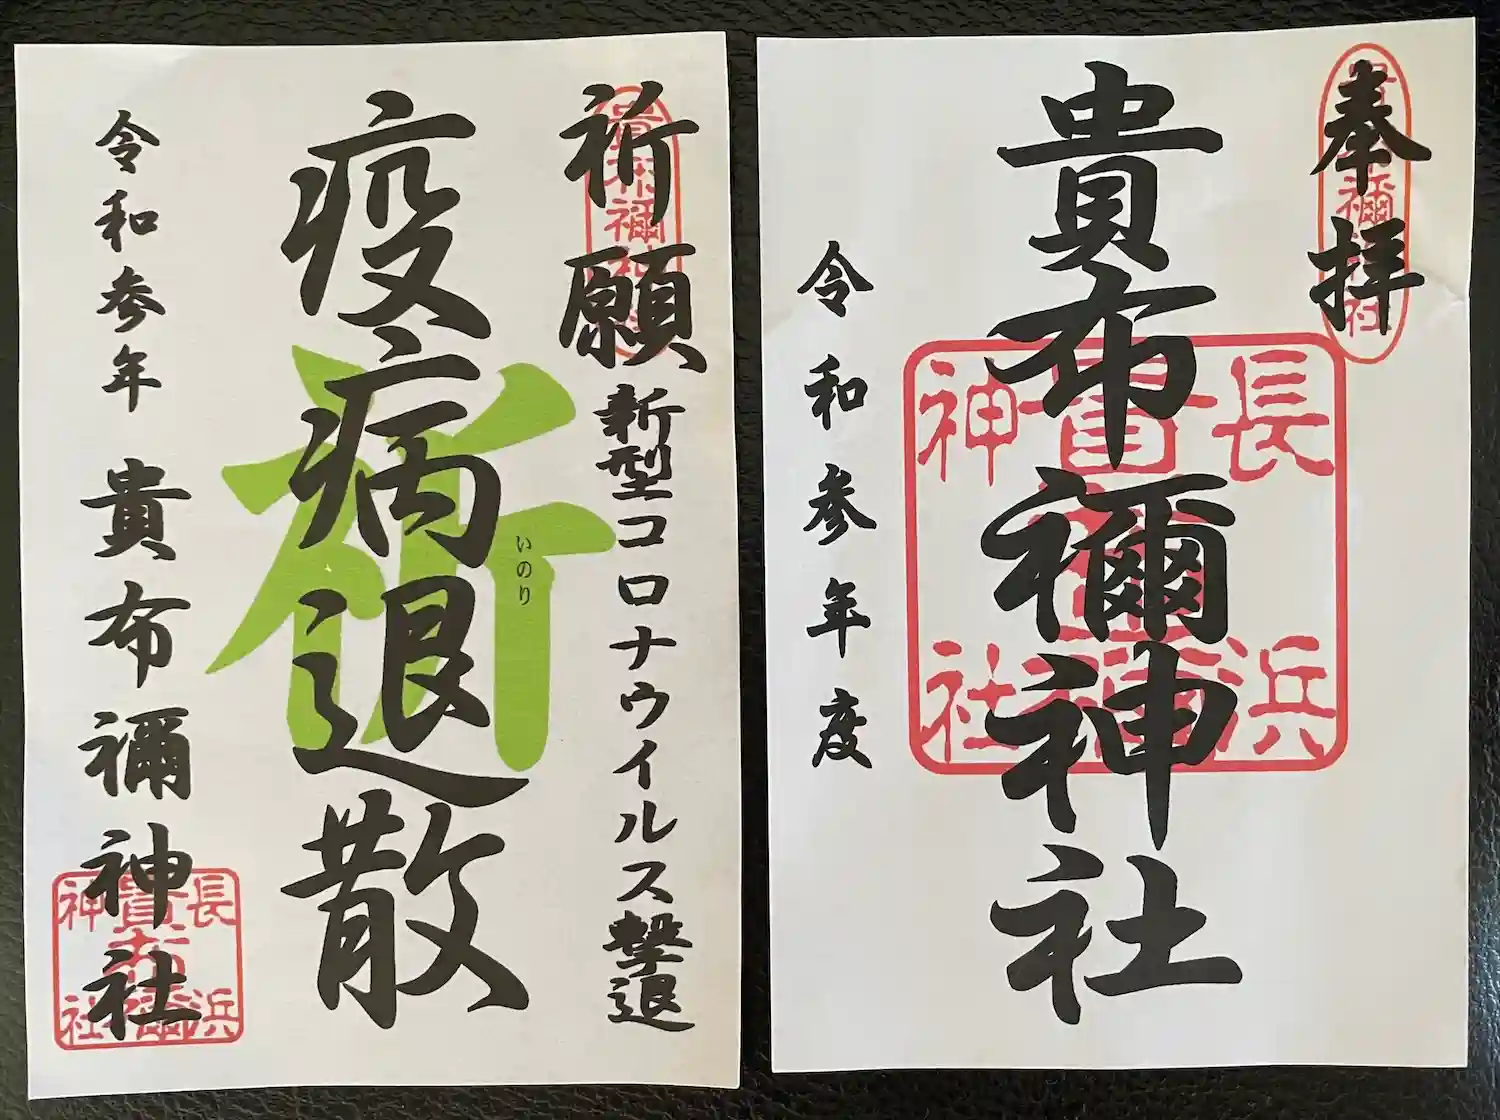 奉拝
貴布禰神社
令和参年度
長浜
貴布禰
神社
貴布禰神社
祈願
新型コロナウイルス撃退
疫病退散
祈
いのり
令和参年
貴布禰神社
長浜
貴布禰
神社
貴布禰神社